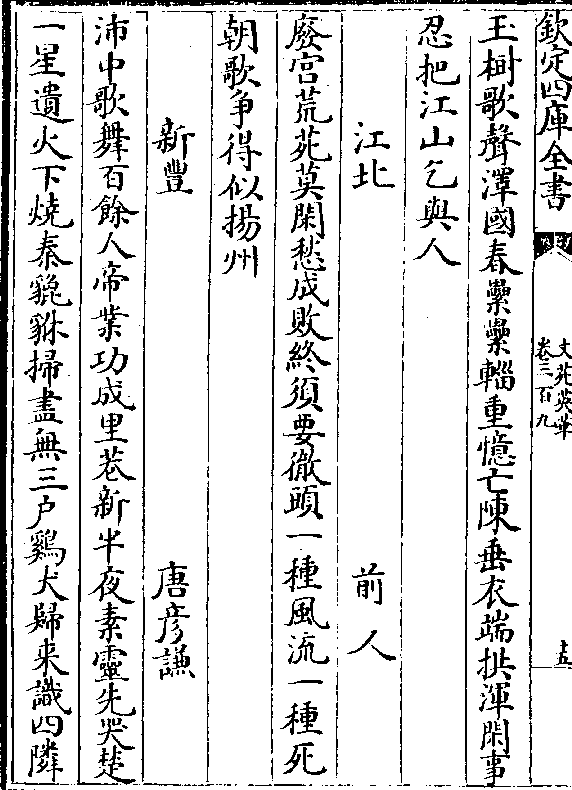 欽定四庫全書
文苑英華
卷三百九
十五
玉樹歌聲澤國春纍纍輜重憶亡陳垂衣端拱渾閑事
忍把江山乞與人
江北　前人
廢宫荒苑莫閑愁成敗終須要徹頭一種風流一種死
朝歌争得似揚州
新豐　唐彦謙
沛中歌舞百餘人帝業功成里巷新半夜素靈先哭楚
一星遺火下燒秦貔貅掃盡無三户鷄犬歸來識四隣